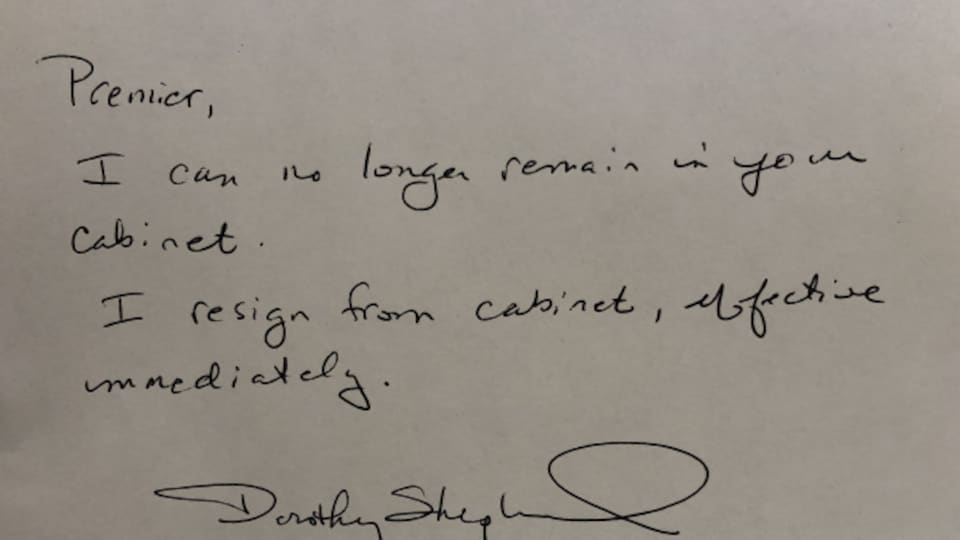 Premier,
I can no longer remain in your
cabinet.
I resign from cabinet, effective
immediately.
Dorothy Shephard